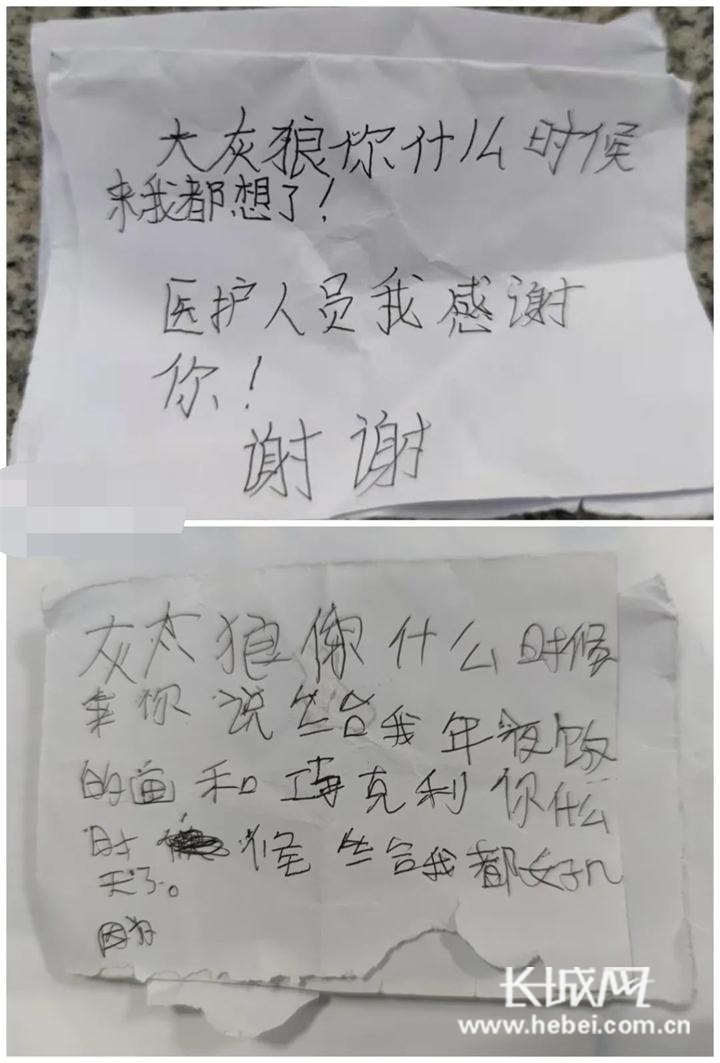 大灰狼你什么时候
来我都想了！
医护人员我感谢
你！
谢谢
灰太狼你什么时候
来你说给我年夜饭
的画和巧克利你什么
时候给我都好几
天了。
因为
长城网
www.hebei.com.cn